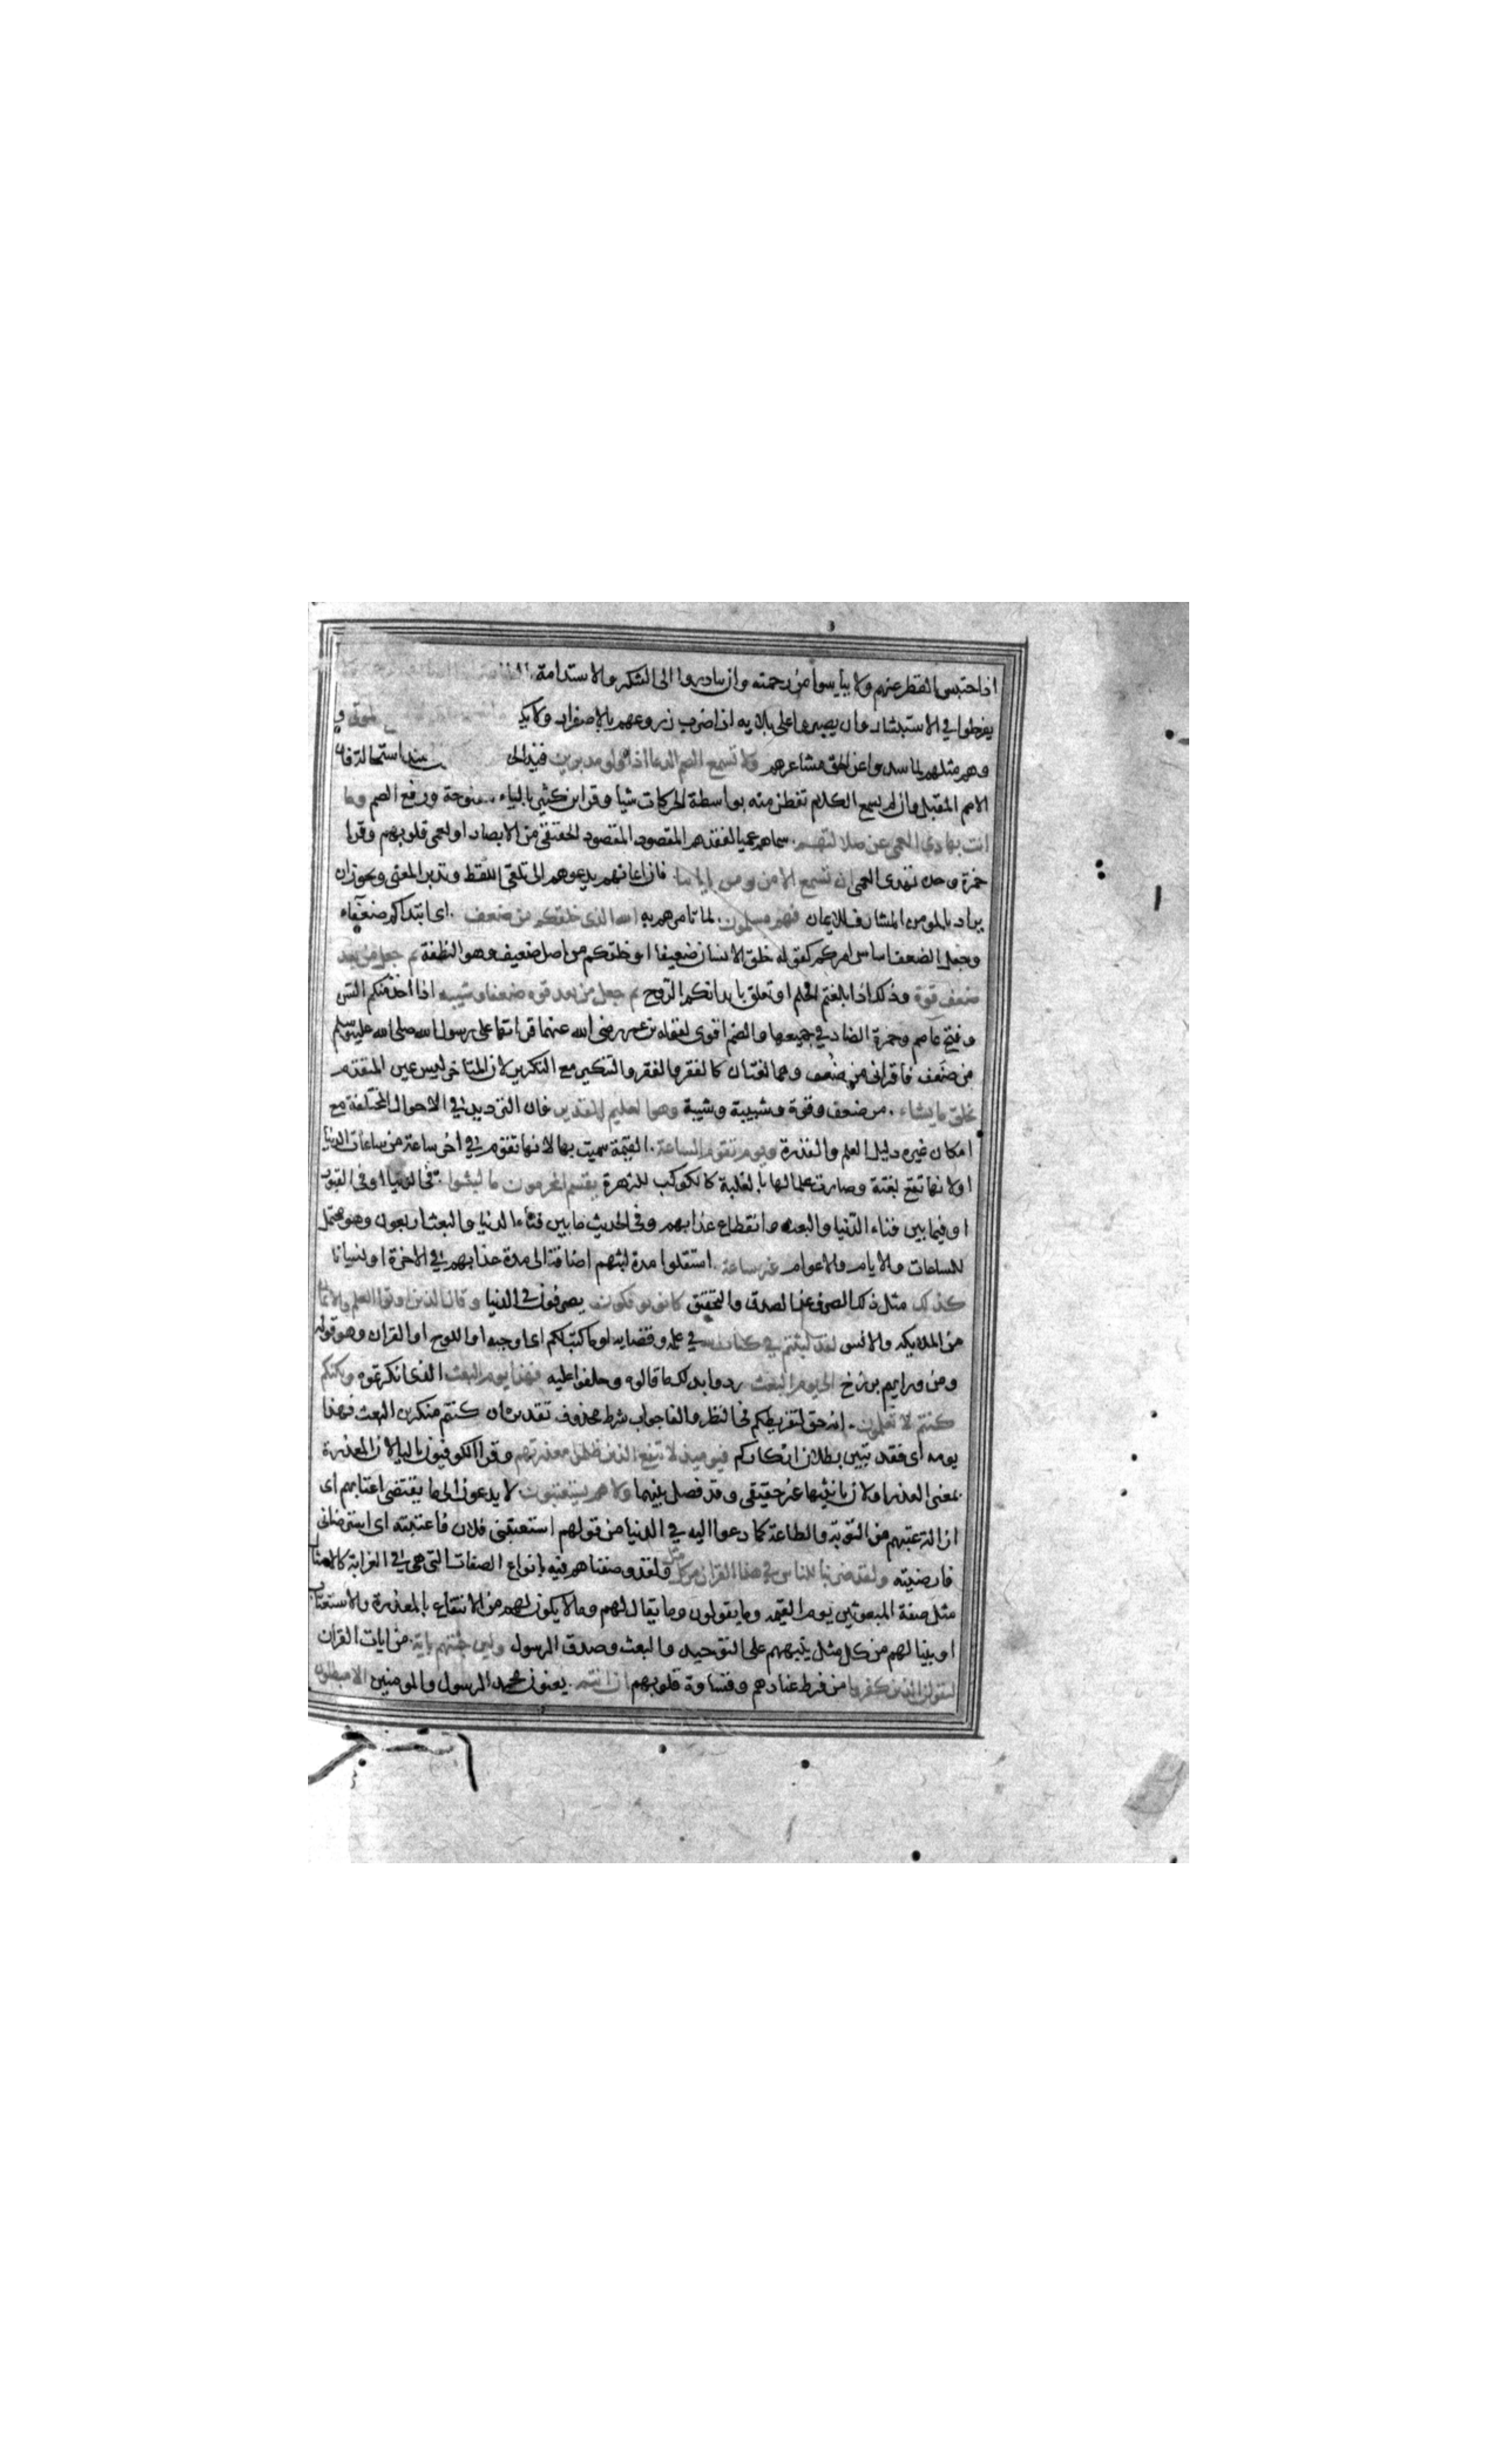 اذا احتبس القطر عنهم ولا ييأسوا من رحمته وان يبادروا الى الشكر والاستدامة بالطاعة
يفرطوا في الاستبشار وان يصبروا على بلايه اذا ضرب زروعهم بالاصفرار ولا يكفروا الموتى و
وهم مثلهم لما سدوا عن الحق مشاعرهم ولا تسمع الصم الدعا اذا ولوا مدبرين قيد الحكم استحالة فان
الاصم المقبل وان لم يسمع الكلام تفطن منه بواسطة الحركات شيا وقرا ابن كثير بالياء مفتوحة ورفع الصم وما
انت بهادي العمى عن ضلالتهم سماهم عميا لفقدهم المقصود المقصود الحقيقى من الابصار او لعمى قلوبهم وقرا
حمزة وحده تهدى العمى ان تسمع الا من يومن باياتنا فان ايمانهم يدعوهم الى تلقى اللفظ وتدبر المعنى ويجوز ان
يراد بالمومن المشارف للايمان فهم مسلمون لما تامرهم به الله الذى خلقكم من ضعف اى ابتداكم ضعفاء
وجعل الضعف اساس امركم كقوله خلق الانسان ضعيفا او خلقكم من اصل ضعيف وهو النطفة ثم جعل من بعد
ضعف قوة وذلك اذا بلغتم الحلم او تعلق بابدانكم الروح ثم جعل من بعد قوة ضعفا وشيبة اذا اخذ منكم السن
وفتح عاصم وحمزة الضاد في جميعها والضم اقوى لقول ابن عمر رضى الله عنهما قراتها على رسول الله صلى الله عليه وسلم
من ضَعف فاقرانى من ضُعف وهما لغتان كالفقر والفقر والتنكير مع التكرير لان المتاخر ليس عين المتقدم
يخلق ما يشاء من ضعف وقوة وشبيبة وشيبة وهو العليم القدير فان الترديد في الاحوال المختلفة مع
امكان غيره دليل العلم والقدرة ويوم تقوم الساعة القيمة سميت بها لانها تقوم في اخر ساعة من ساعات الدنيا
اولانها تقع بغتة وصارت علما لها بالغلبة كالكوكب للزهرة يقسم المجرمون ما لبثوا في الدنيا او في القبور
او فيما بين فناء الدنيا والبعث وانقطاع عذابهم وفي الحديث ما بين فناء الدنيا والبعث اربعون وهو محتمل
للساعات والايام والاعوام غير ساعة استقلوا مدة لبثهم اضافة الى مدة عذابهم في الاخرة او نسيانا
كذلك مثل ذلك الصرف عن الصدق والتحقيق كانوا يوفكون يصرفون في الدنيا وقال الذين اوتوا العلم والايمان
من الملايكة والانس لقد لبثتم في كتاب الله في علمه وقضايه او ما كتبه لكم اى اوجبه او اللوح او القران وهو قوله
ومن ورايهم برزخ الى يوم البعث ردوا بذلك ما قالوه وحلفوا عليه فهذا يوم البعث الذى انكرتموه ولكنكم
كنتم لا تعلمون انه حق لتفريطكم في النظر والفا جواب شرط محذوف تقديره ان كنتم منكرين البعث فهذا
يومه اى فقد تبين بطلان انكاركم فيوميذ لا تنفع الذين ظلموا معذرتهم وقرا الكوفيون بالياء لان المعذرة
بمعنى العذر او لان تانيثها غير حقيقى وقد فصل بينهما ولا هم يستعتبون لا يدعون الى ما يقتضى اعتابهم اى
ازالة عتبهم من التوبة والطاعة كما دعوا اليه في الدنيا من قولهم استعتبنى فلان فاعتبته اى استرضانى
فارضيته ولقد ضربنا للناس في هذا القران من كل مثل ولقد وصفناهم فيه بانواع الصفات التى هى في الغرابة كالامثال
مثل صفة المبعوثين يوم القيمة وما يقولون وما يقال لهم وما لا يكون لهم من الانتفاع بالمعذرة والاستعتاب
او بينا لهم من كل مثل ينبههم على التوحيد والبعث وصدق الرسول ولين جئتهم باية من ايات القران
ليقولن الذين كفروا من فرط عنادهم وقساوة قلوبهم ان انتم يعنون محمد الرسول والمومنين الا مبطلون